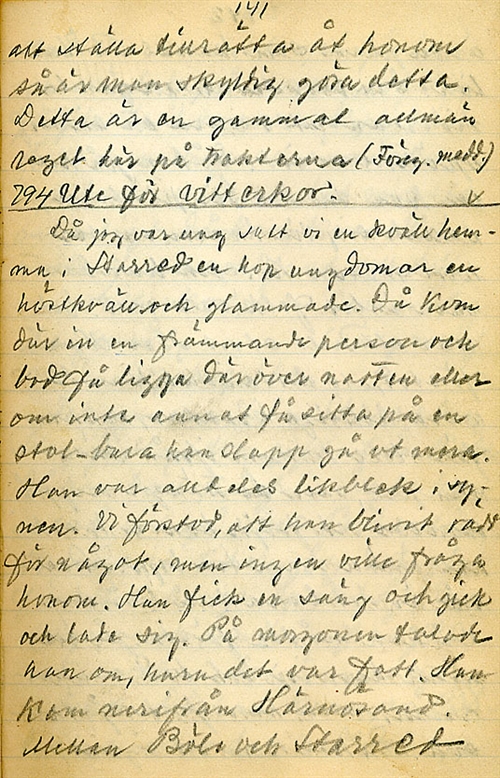 141
att ställa tillrätta åt honom
så är man skyldig göra detta.
Detta är en gammal allmän
regel här på trakterna (Föreg. medd.)
794 Ute för vitterkor. v
Då jag var ung satt vi en kväll hem-
ma i Starred en hop ungdomar en
höstkväll och glammade. Då kom
där in en främmande person och
bod få ligga där över natten eller
om inte annat få sitta på en
stol – bara han slapp gå ut mera.
Han var alldeles likblek i sy-
nen. Vi förstod, att han blivit rädd
för något, men ingen ville fråga
honom. Han fick en säng och gick
och lade sig. På morgonen talade
han om, huru det var fatt. Han
kom nerifrån Härnösand.
Mellan Böle och Starred